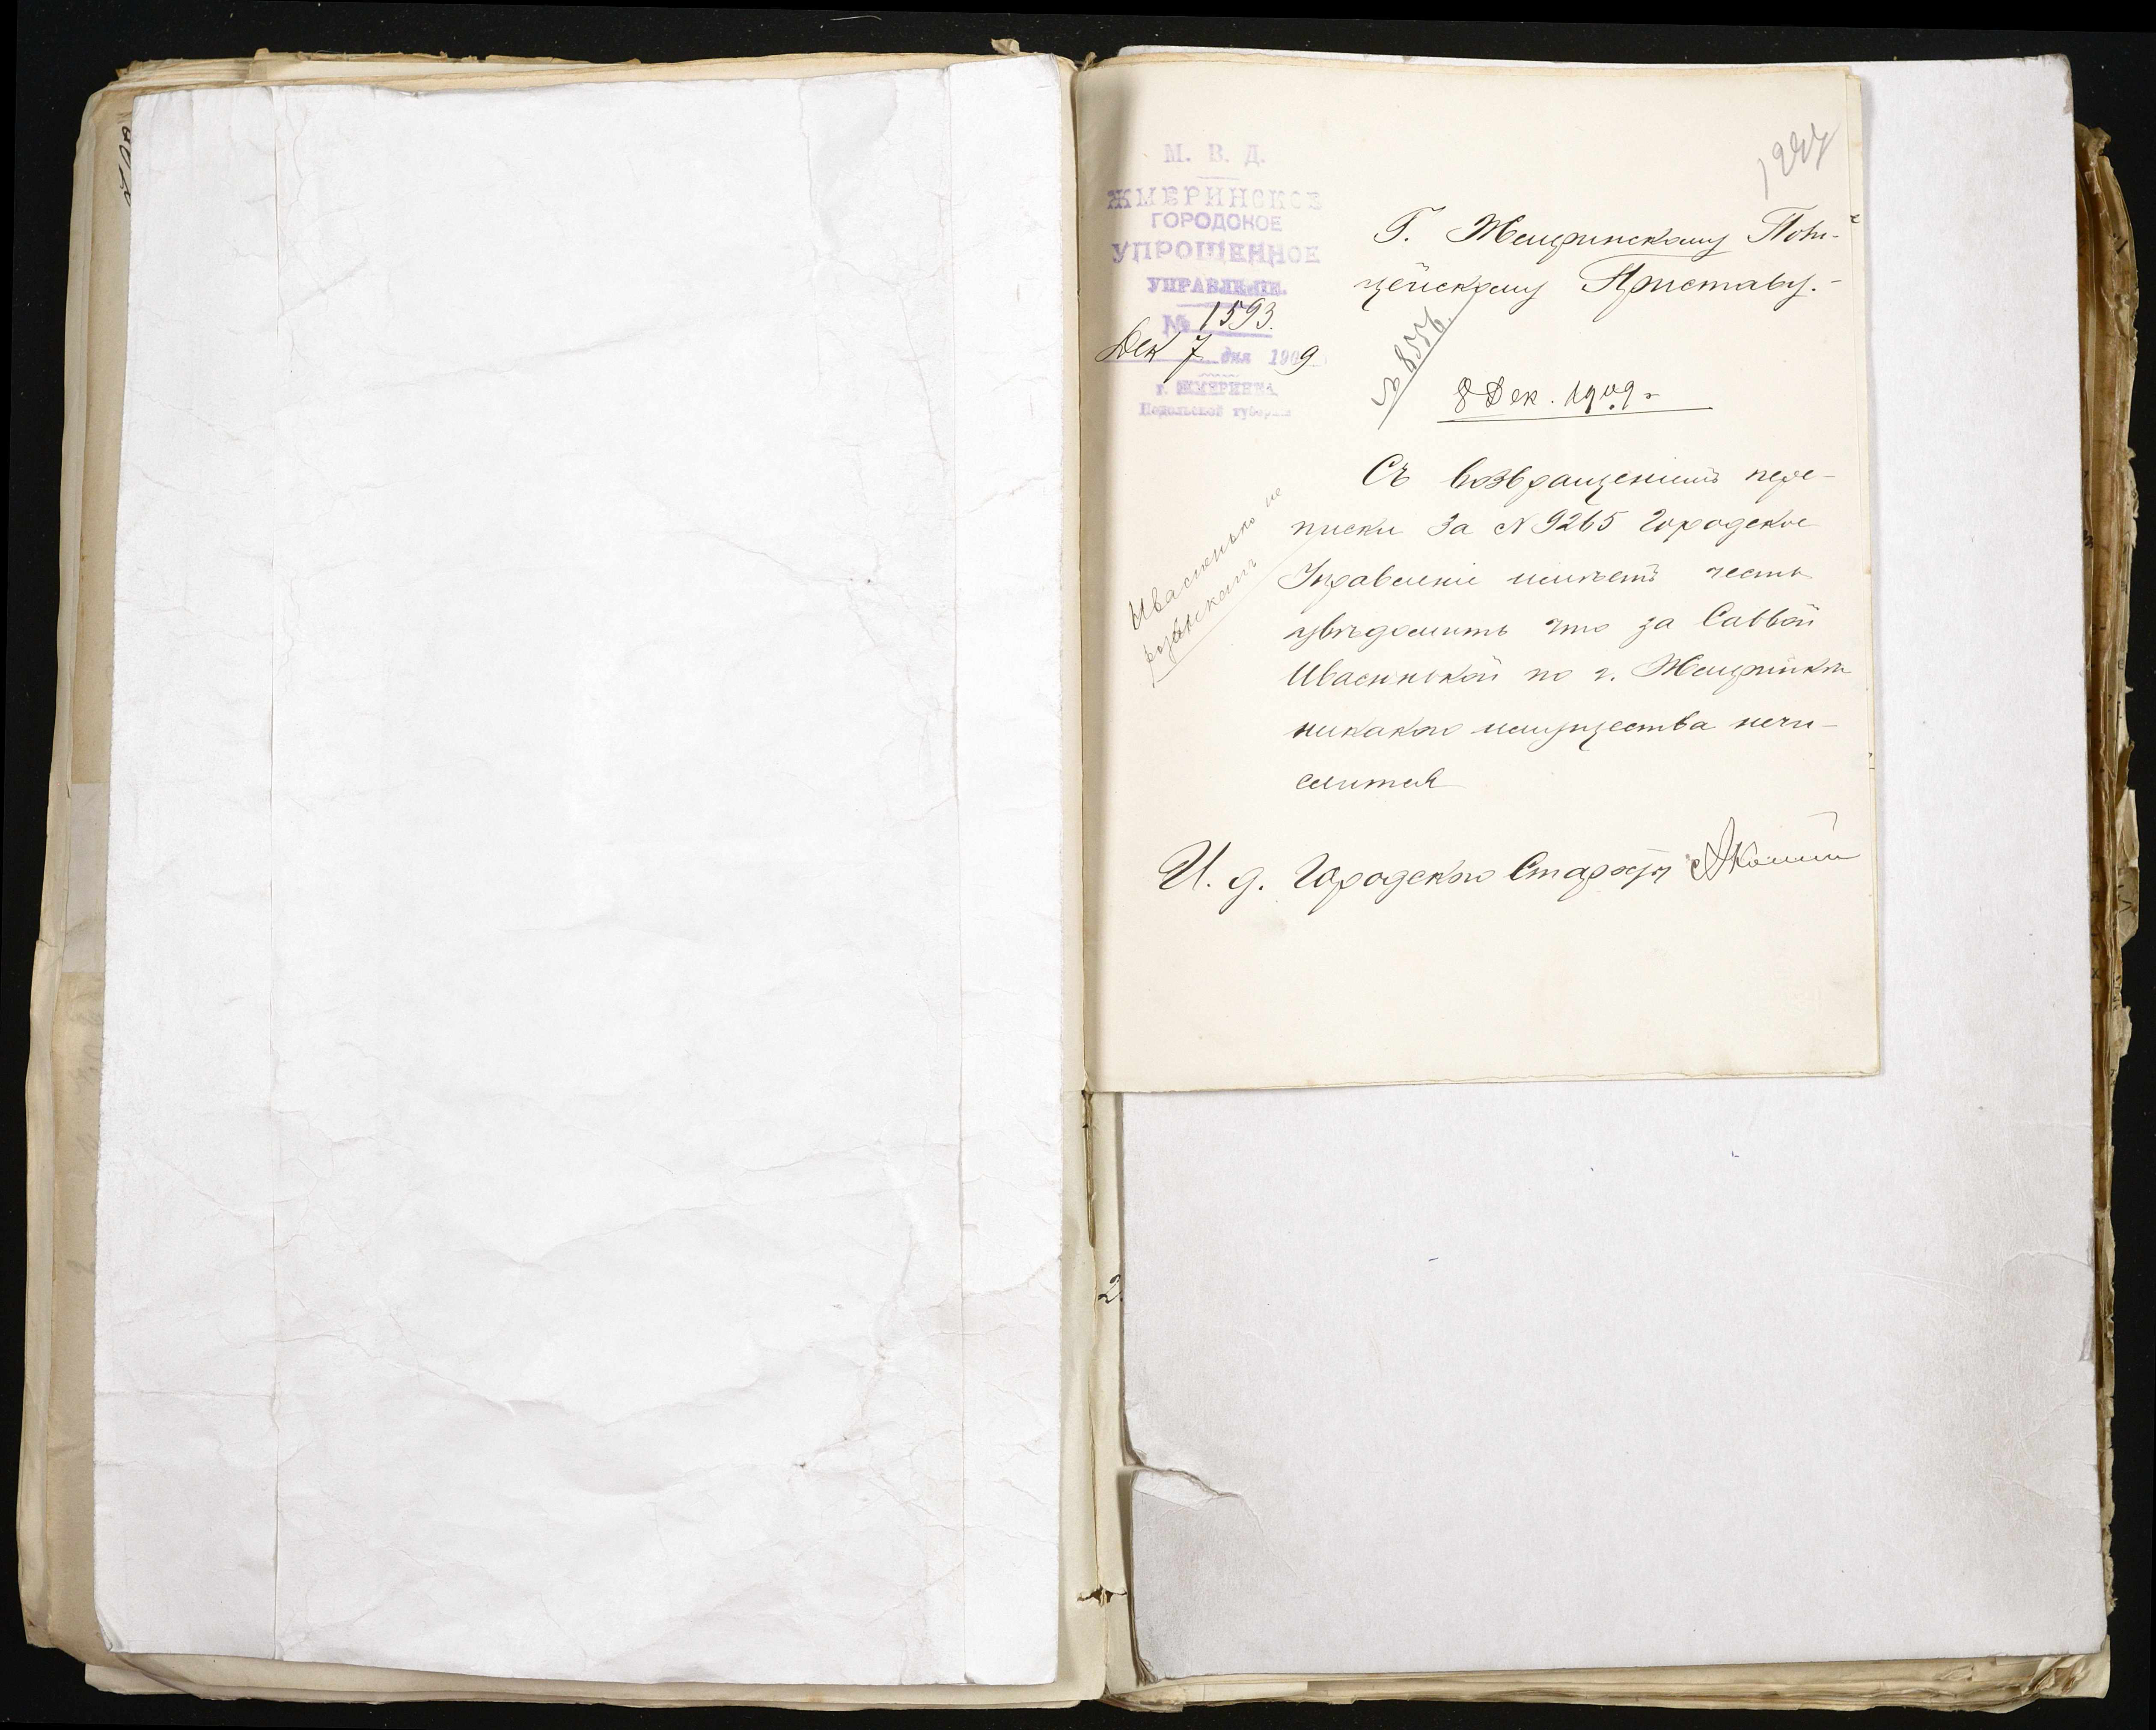 М. В. Д.
ЖМЕРИНСКОЕ
ГОРОДСКОЕ
УПРОЩЕННОЕ
УПРАВЛЕНІЕ.
№ 1593.
Дек 7 дня 1909
г. ЖМЕРИНКА
Подольской губерніи
Г. Жмеринскому Поли-
цейскому Приставу.-
№ 8556.
8 Дек. 1909 г
Съ возвращеніемъ пере-
писки за № 9265 Городское
Управленіе имѣетъ честь
увѣдомить что за Саввой
Ивасенькой по г. Жмеринкѣ
никакого имущества нечи-
слится
И. д. Городского Старосты
Ивасенько не
розысканъ
2.